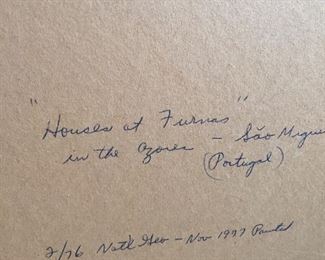 "Houses at Furnas"
in the Azores – São Migue
(Portugal)
2/76 Nat'l Geo – Nov 1977 Painted